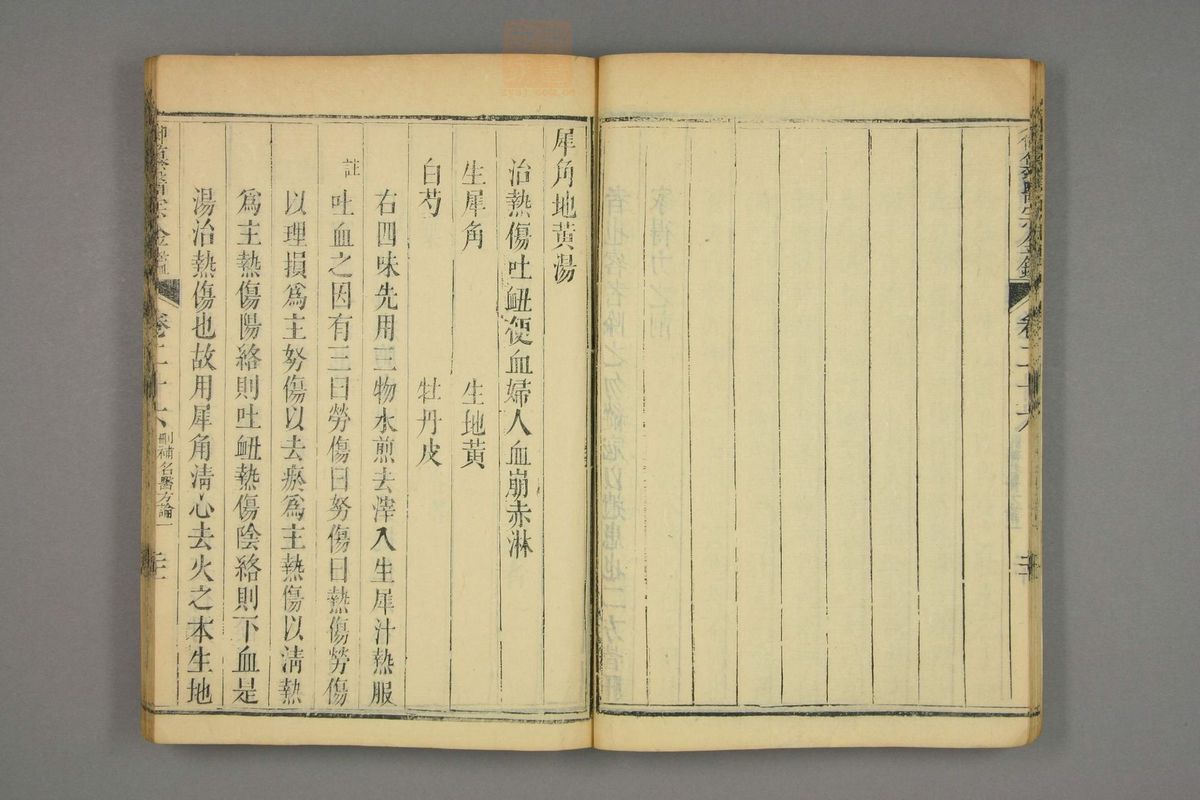 御纂醫宗金鑑
卷二十六
犀角地黃湯
治熱傷吐衄便血婦人血崩赤淋
生犀角　生地黃
白芍　牡丹皮
右四味先用三物水煎去滓入生犀汁熱服
註
吐血之因有三曰勞傷曰努傷曰熱傷勞傷
以理損爲主努傷以去瘀爲主熱傷以清熱
爲主熱傷陽絡則吐衄熱傷陰絡則下血是
湯治熱傷也故用犀角清心去火之本生地
御纂醫宗金鑑
卷二十六
刪補名醫方論一